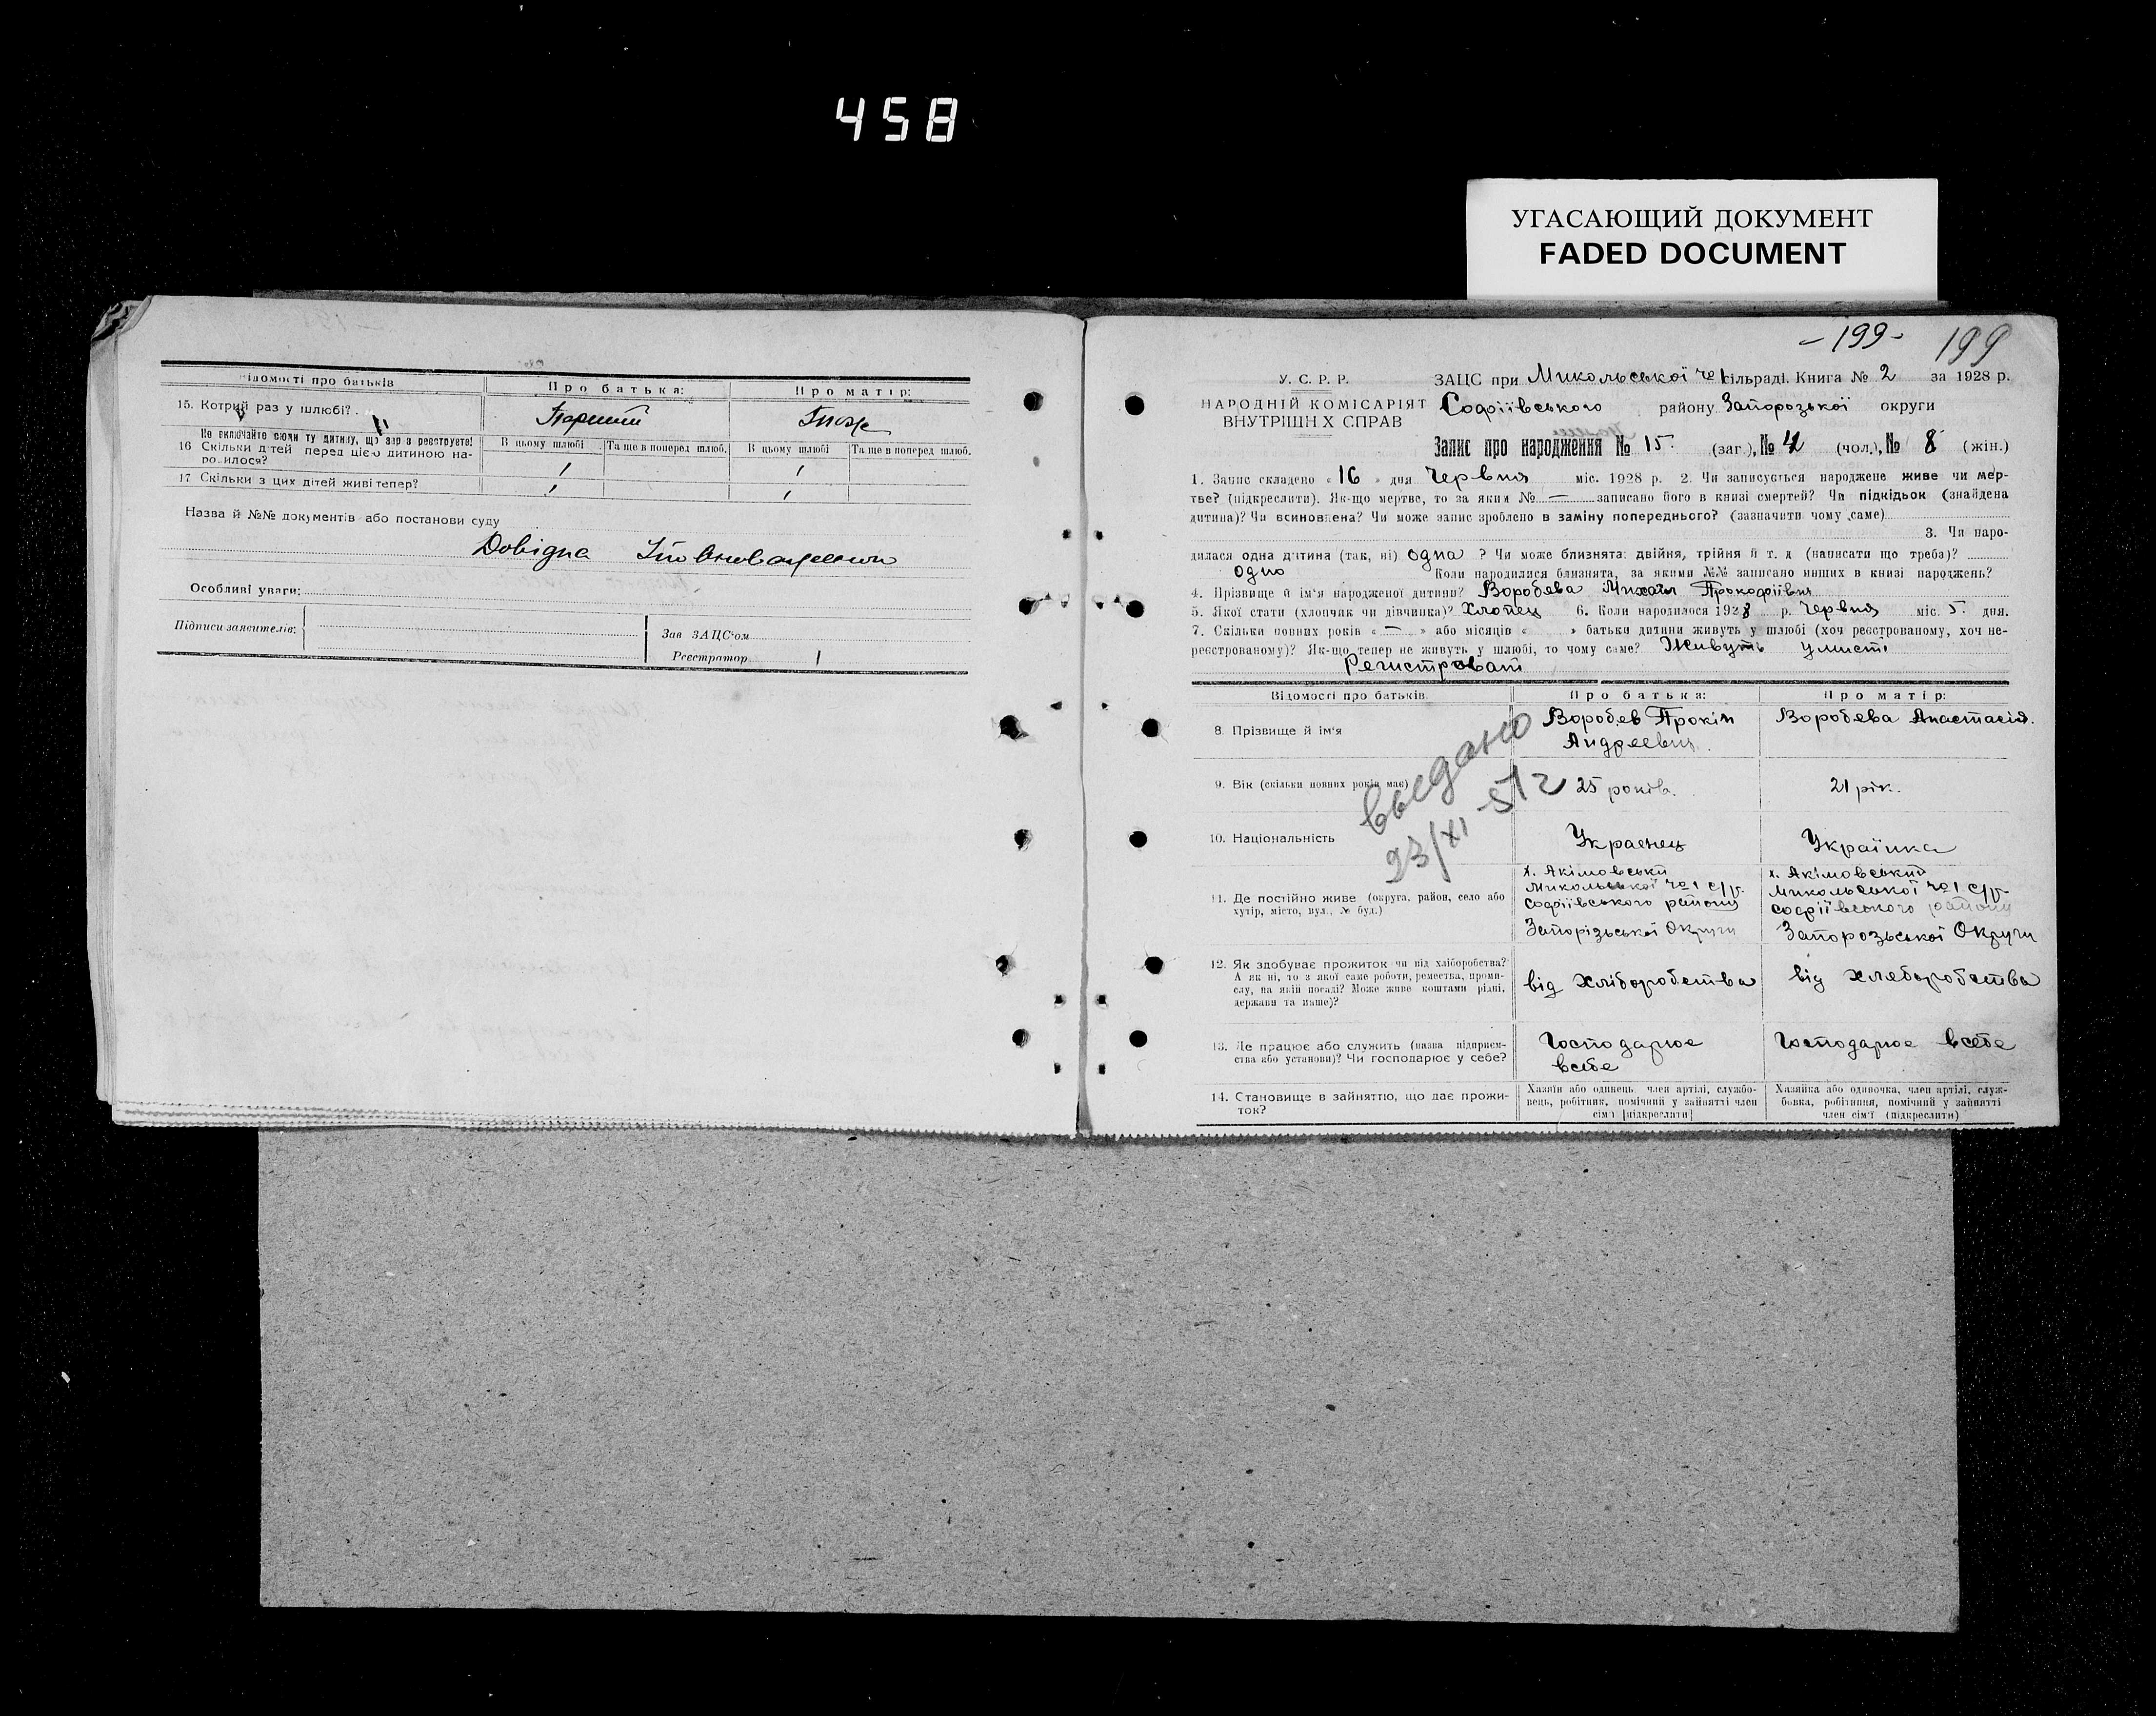 458
УГАСАЮЩИЙ ДОКУМЕНТ
FADED DOCUMENT
Відомості про батьків
Про батька:
Про матір:
15. Котрий раз у шлюбі?
Перший
Тиож
Не включайте сюди ту дитину, що зараз реєструєте!
16 Скільки дітей перед цією дитиною на-
родилося?
В цьому шлюбі
Та ще в поперед шлюб.
В цьому шлюбі
Та ще в поперед шлюб.
1
1
17 Скільки з цих дітей живі тепер?
1
1
Назва й №№ документів або постанови суду
Довідна
Особливі уваги:
Підписи заявителів:
Зав ЗАЦС'ом
Реєстратор
- 199 -
199
У. С. Р. Р.
НАРОДНІЙ КОМІСАРІЯТ
ВНУТРІШНІХ СПРАВ
ЗАЦС при Микольської №1 сільраді. Книга № 2 за 1928 р.
Софіївського району Запорозької округи
Запис про народження № 15 (заг.), № 4 (чол.), № 8 (жін.)
1. Запис складено «16» дня Червня міс. 1928 р. 2. Чи записується народжене живе чи мер-
тве? (підкреслити). Як-що мертве, то за яким № — записано його в книзі смертей? Чи підкідьок (знайдена
дитина)? Чи всиновлена? Чи може запис зроблено в заміну попереднього? (зазначити чому саме)
3. Чи наро-
дилася одна дитина (так, ні) одна ? Чи може близнята: двійня, трійня й т. д (написати що треба)?
одно Коли народилися близнята, за якими №№ записано инших в книзі народжень?
4. Прізвище й ім'я народженої дитини? Воробєва Михайл Прокофіівня
5. Якої статі (хлопчик чи дівчинка)? Хлопец 6. Коли народилося 1928 р. Червня міс. 5 дня.
7. Скільки повних років « — » або місяців « » батьки дитини живуть у шлюбі (хоч реєстрованому, хоч не-
реєстрованому)? Як-що тепер не живуть у шлюбі, то чому саме? Живуть умисті
Регистроват
Відомості про батьків.
Про батька:
Про матір:
8. Прізвище й ім'я
Воробєв Прокіп
Андреевич
Воробєва Анастасія.
выдано
23/XI-51 г
9. Вік (скільки повних років має)
25 років.
21 рік.
10. Національність
Украєнец
Українка
11. Де постійно живе (округа, район, село або
хутір, місто, вул., № буд.)
х. Акімовський
Микольської №1 с/р.
Софіївського району
Запорізьської Округи
х. Акімовський
Микольської №1 с/р
Софіївського району
Запорозьської Округи
12. Як здобуває прожиток чи від хліборобства?
А як ні, то з якої саме роботи, ремества, проми-
слу, на якій посаді? Може живе коштами рідні,
держави та инше)?
від хліборобства
від хлеборобства
13. Де працює або служить (назва підприєм-
ства або установи)? Чи господарює у себе?
Господарює
всебе
Господарює всебе
14. Становище в зайняттю, що дає прожи-
ток?
Хазяїн або одинець член артілі, службо-
вець, робітник, помічний у зайнятті член
сім'ї [підкреслити]
Хазяйка або одиночка, член артілі, служ-
бовка, робітниця, помічний у зайнятті
член сім'ї (підкреслити)